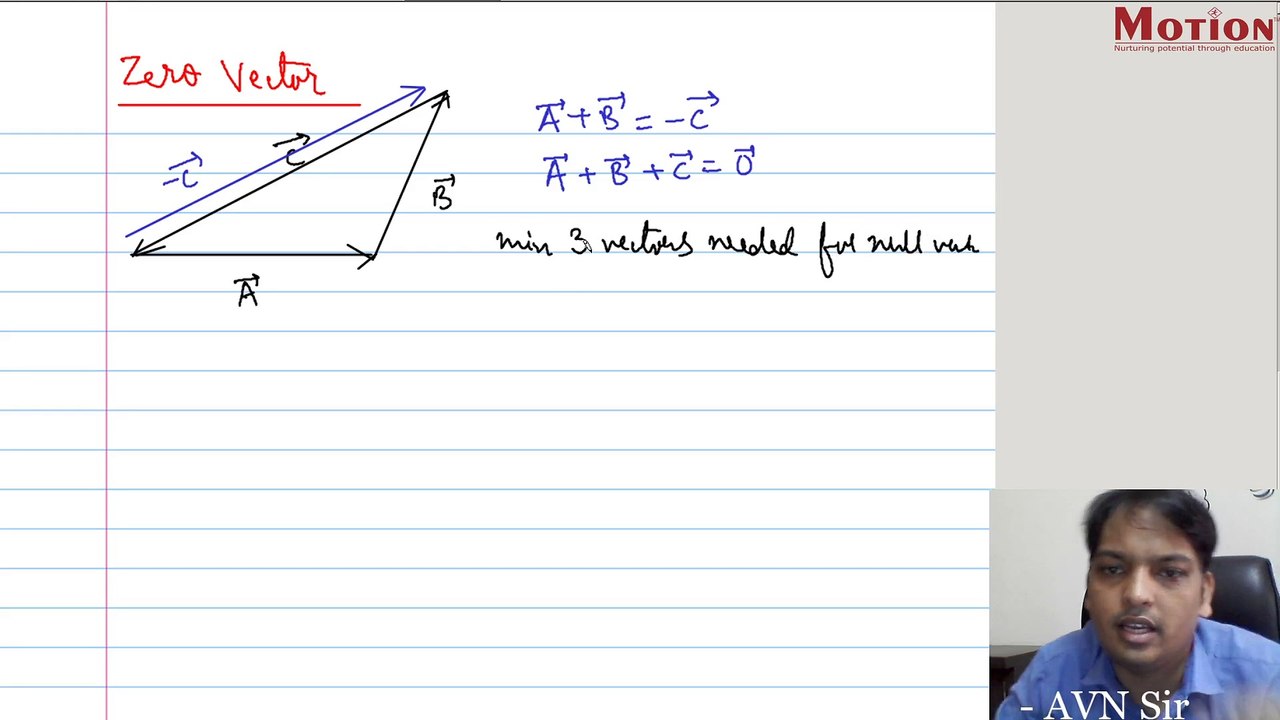 MOTION
Nurturing potential through education
Zero Vector
A⃗ + B⃗ = -C⃗
A⃗ + B⃗ + C⃗ = 0⃗
-C⃗
C⃗
B⃗
A⃗
min 3 vectors needed for null
- AVN Sir